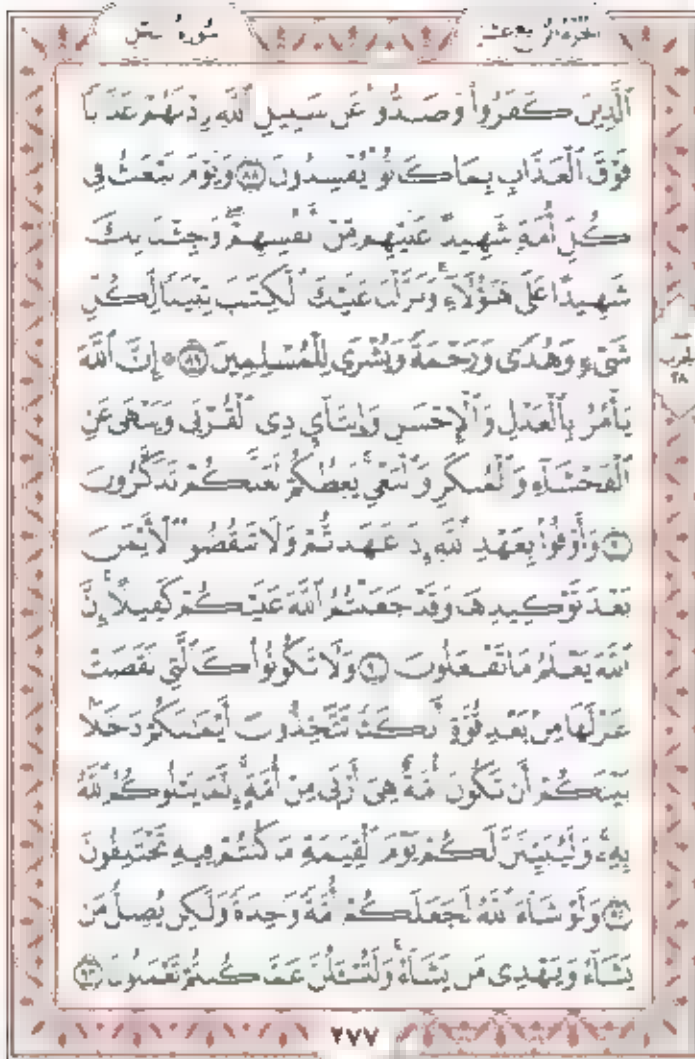 سُورَةُ النَّحْلِ الجُزْءُ الرَّابِعَ عَشَرَ
ٱلَّذِينَ كَفَرُوا۟ وَصَدُّوا۟ عَن سَبِيلِ ٱللَّهِ زِدْنَٰهُمْ عَذَابًا
فَوْقَ ٱلْعَذَابِ بِمَا كَانُوا۟ يُفْسِدُونَ ٨٨ وَيَوْمَ نَبْعَثُ فِى
كُلِّ أُمَّةٍ شَهِيدًا عَلَيْهِم مِّنْ أَنفُسِهِمْ ۖ وَجِئْنَا بِكَ
شَهِيدًا عَلَىٰ هَٰٓؤُلَآءِ ۚ وَنَزَّلْنَا عَلَيْكَ ٱلْكِتَٰبَ تِبْيَٰنًا لِّكُلِّ
شَىْءٍ وَهُدًى وَرَحْمَةً وَبُشْرَىٰ لِلْمُسْلِمِينَ ٨٩ ۞ إِنَّ ٱللَّهَ
يَأْمُرُ بِٱلْعَدْلِ وَٱلْإِحْسَٰنِ وَإِيتَآئِ ذِى ٱلْقُرْبَىٰ وَيَنْهَىٰ عَنِ
ٱلْفَحْشَآءِ وَٱلْمُنكَرِ وَٱلْبَغْىِ ۚ يَعِظُكُمْ لَعَلَّكُمْ تَذَكَّرُونَ
٩٠ وَأَوْفُوا۟ بِعَهْدِ ٱللَّهِ إِذَا عَٰهَدتُّمْ وَلَا تَنقُضُوا۟ ٱلْأَيْمَٰنَ
بَعْدَ تَوْكِيدِهَا وَقَدْ جَعَلْتُمُ ٱللَّهَ عَلَيْكُمْ كَفِيلًا ۚ إِنَّ
ٱللَّهَ يَعْلَمُ مَا تَفْعَلُونَ ٩١ وَلَا تَكُونُوا۟ كَٱلَّتِى نَقَضَتْ
غَزْلَهَا مِنۢ بَعْدِ قُوَّةٍ أَنكَٰثًا تَتَّخِذُونَ أَيْمَٰنَكُمْ دَخَلًۢا
بَيْنَكُمْ أَن تَكُونَ أُمَّةٌ هِىَ أَرْبَىٰ مِنْ أُمَّةٍ ۚ إِنَّمَا يَبْلُوكُمُ ٱللَّهُ
بِهِۦ ۚ وَلَيُبَيِّنَنَّ لَكُمْ يَوْمَ ٱلْقِيَٰمَةِ مَا كُنتُمْ فِيهِ تَخْتَلِفُونَ
٩٢ وَلَوْ شَآءَ ٱللَّهُ لَجَعَلَكُمْ أُمَّةً وَٰحِدَةً وَلَٰكِن يُضِلُّ مَن
يَشَآءُ وَيَهْدِى مَن يَشَآءُ ۚ وَلَتُسْـَٔلُنَّ عَمَّا كُنتُمْ تَعْمَلُونَ ٩٣
الحزب
٢٨
٢٧٧